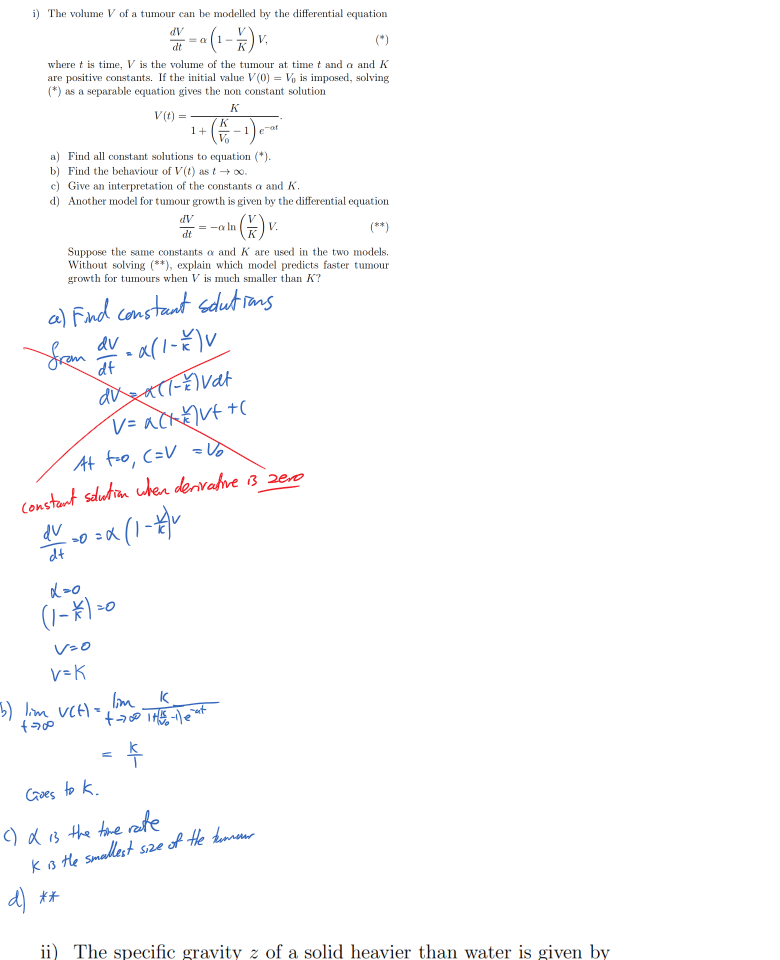 i) The volume V of a tumour can be modelled by the differential equation
dV/dt = α (1 − V/K) V, (*)
where t is time, V is the volume of the tumour at time t and α and K
are positive constants. If the initial value V(0) = V₀ is imposed, solving
(*) as a separable equation gives the non constant solution
V(t) = K / (1 + (K/V₀ − 1) e^{−αt}).
a) Find all constant solutions to equation (*).
b) Find the behaviour of V(t) as t → ∞.
c) Give an interpretation of the constants α and K.
d) Another model for tumour growth is given by the differential equation
dV/dt = −α ln (V/K) V. (**)
Suppose the same constants α and K are used in the two models.
Without solving (**), explain which model predicts faster tumour
growth for tumours when V is much smaller than K?
a) Find constant solutions
from dV/dt = α(1 − V/K)V
dV = α(1 − V/K)Vdt
V = α(1 − V/K)Vt + C
At t=0, C=V = V₀
constant solution when derivative is zero
dV/dt = 0 = α (1 − V/K)V
α=0
(1 − V/K) = 0
V=0
V=K
b) lim t→∞ V(t) = lim t→∞ K / (1+(K/V₀ −1)e^{−αt})
= K/1
Goes to K.
c) α is the time rate
K is the smallest size of the tumour
d) **
ii) The specific gravity z of a solid heavier than water is given by